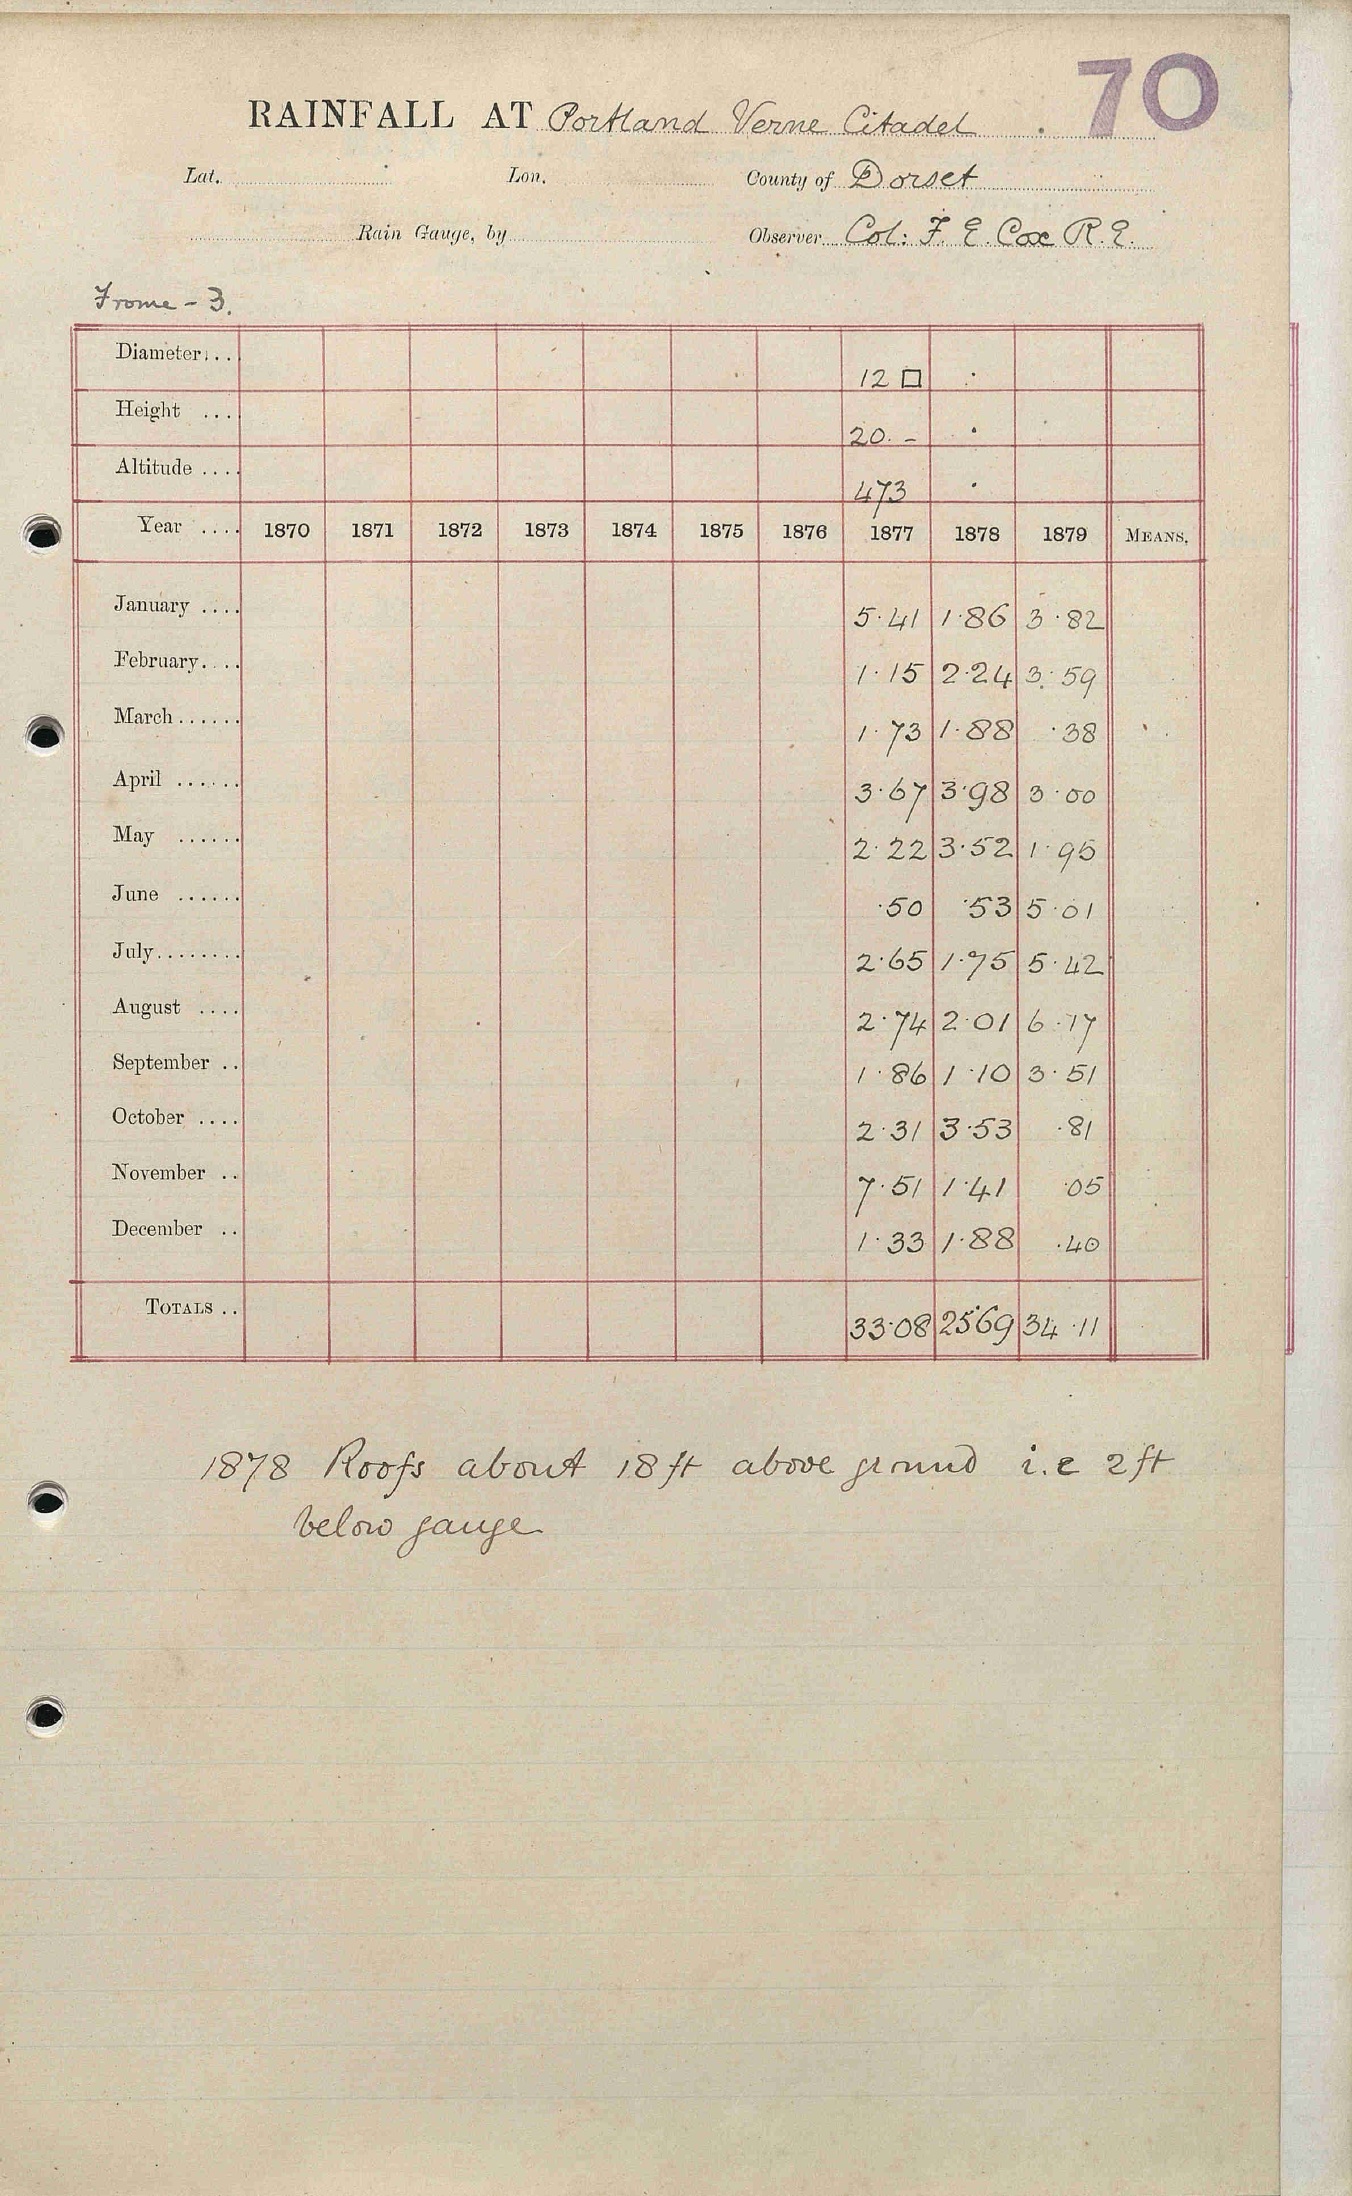 70
RAINFALL AT Portland Verne Citadel
Lat. Lon. County of Dorset
Rain Gauge, by Observer Col: F. E. Cox R.E.
Frome - 3.
Diameter... 12 □
Height ... 20. -
Altitude .... 473
Year .... 1870 1871 1872 1873 1874 1875 1876 1877 1878 1879 MEANS.
January .... 5.41 1.86 3.82
February.... 1.15 2.24 3.59
March...... 1.73 1.88 .38
April ...... 3.67 3.98 3.00
May ...... 2.22 3.52 1.95
June ...... .50 .53 5.01
July........ 2.65 1.75 5.42
August .... 2.74 2.01 6.17
September .. 1.86 1.10 3.51
October .... 2.31 3.53 .81
November .. 7.51 1.41 .05
December .. 1.33 1.88 .40
TOTALS .. 33.08 25.69 34.11
1878 Roofs about 18 ft above ground i.e 2 ft
below gauge